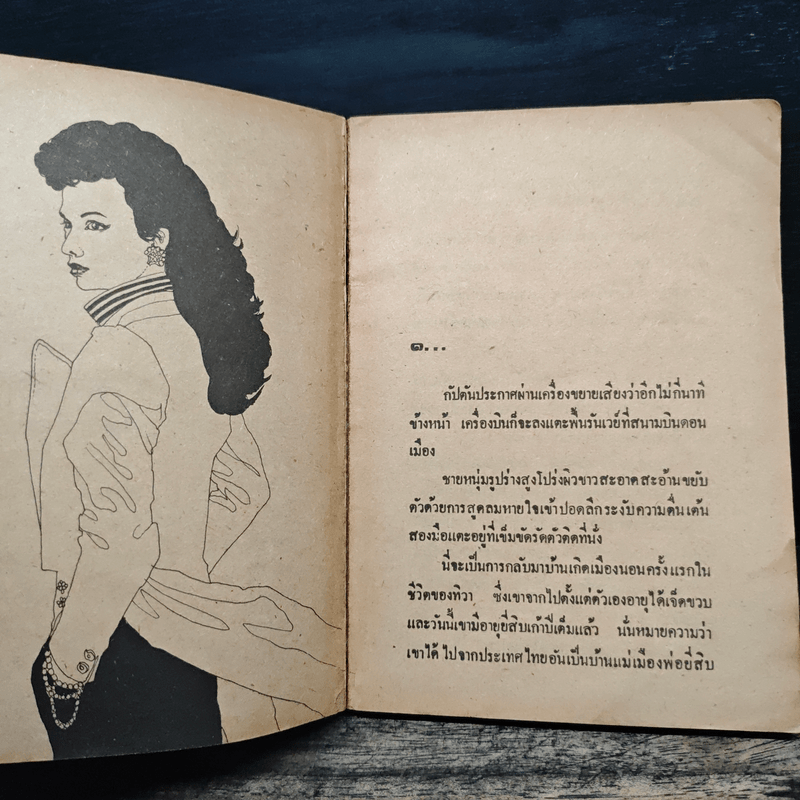 ๑...
กัปตันประกาศผ่านเครื่องขยายเสียงว่าอีกไม่กี่นาที
ข้างหน้า เครื่องบินก็จะลงแตะพื้นรันเวย์ที่สนามบินดอน
เมือง
ชายหนุ่มรูปร่างสูงโปร่งผิวขาวสะอาดสะอ้านขยับ
ตัวด้วยการสูดลมหายใจเข้าปอดลึกระงับความตื่นเต้น
สองมือแตะอยู่ที่เข็มขัดรัดตัวติดที่นั่ง
นี่จะเป็นการกลับมาบ้านเกิดเมืองนอนครั้งแรกใน
ชีวิตของทิวา ซึ่งเขาจากไปตั้งแต่ตัวเองอายุได้เจ็ดขวบ
และวันนี้เขามีอายุยี่สิบเก้าปีเต็มแล้ว นั่นหมายความว่า
เขาได้ไปจากประเทศไทยอันเป็นบ้านแม่เมืองพ่อยี่สิบ